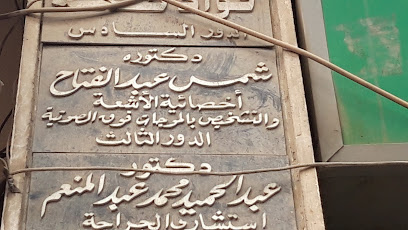 الدور السادس
دكتوره
شمس عبد الفتاح
أخصائية الأشعة
والتشخيص بالموجات فوق الصوتية
الدور الثالث
دكتور
عبد الحميد محمد عبد المنعم
استشارى الجراحة